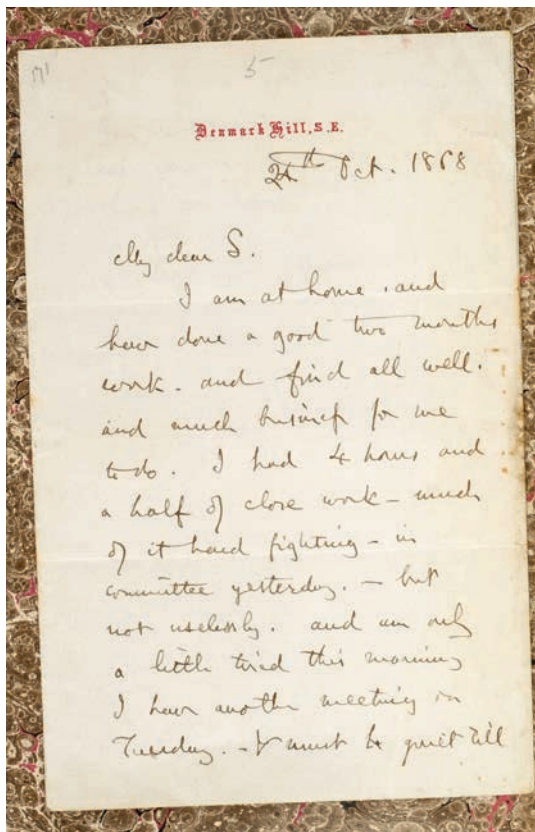 5
Denmark Hill, S.E.
24th Oct. 1868
My dear S.
I am at home. and
have done a good two months
work. and find all well.
and much business for me
to do. I had 4 hours and
a half of close work - much
of it hard fighting - in
committee yesterday. - but
not uselessly. and am only
a little tired this morning
I have another meeting on
Tuesday. - & must be quiet till